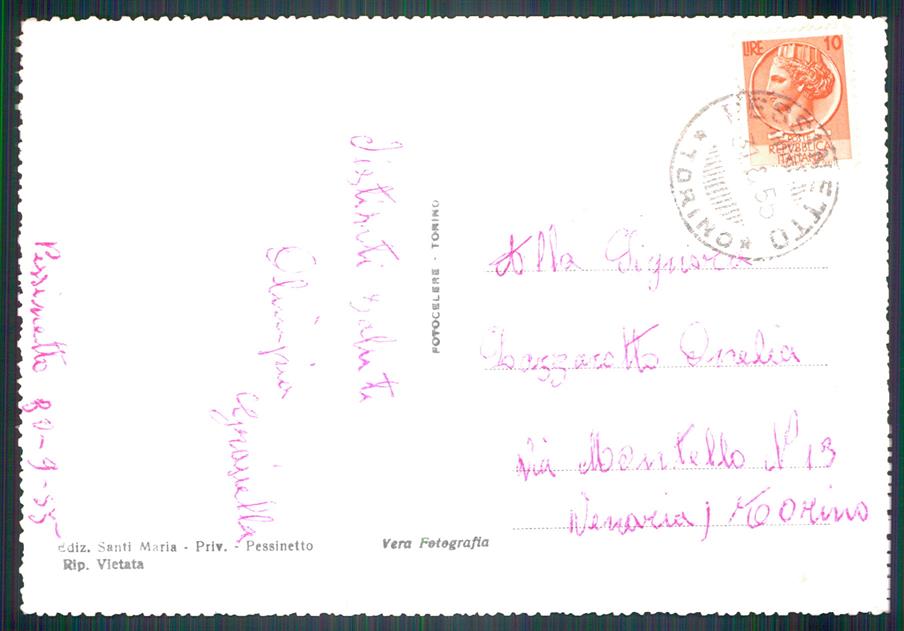 LIRE 10
POSTE
REPVBBLICA
ITALIANA
PESSINETTO * (TORINO) *
31.8.55
Distinti saluti
Olimpia
Graziella
Pessinetto 30-9-55
FOTOCELERE - TORINO
Alla Signora
Lazzarotto Onelia
Via Montello N° 13
Venaria) Torino
Ediz. Santi Maria - Priv. - Pessinetto
Rip. Vietata
Vera Fotografia